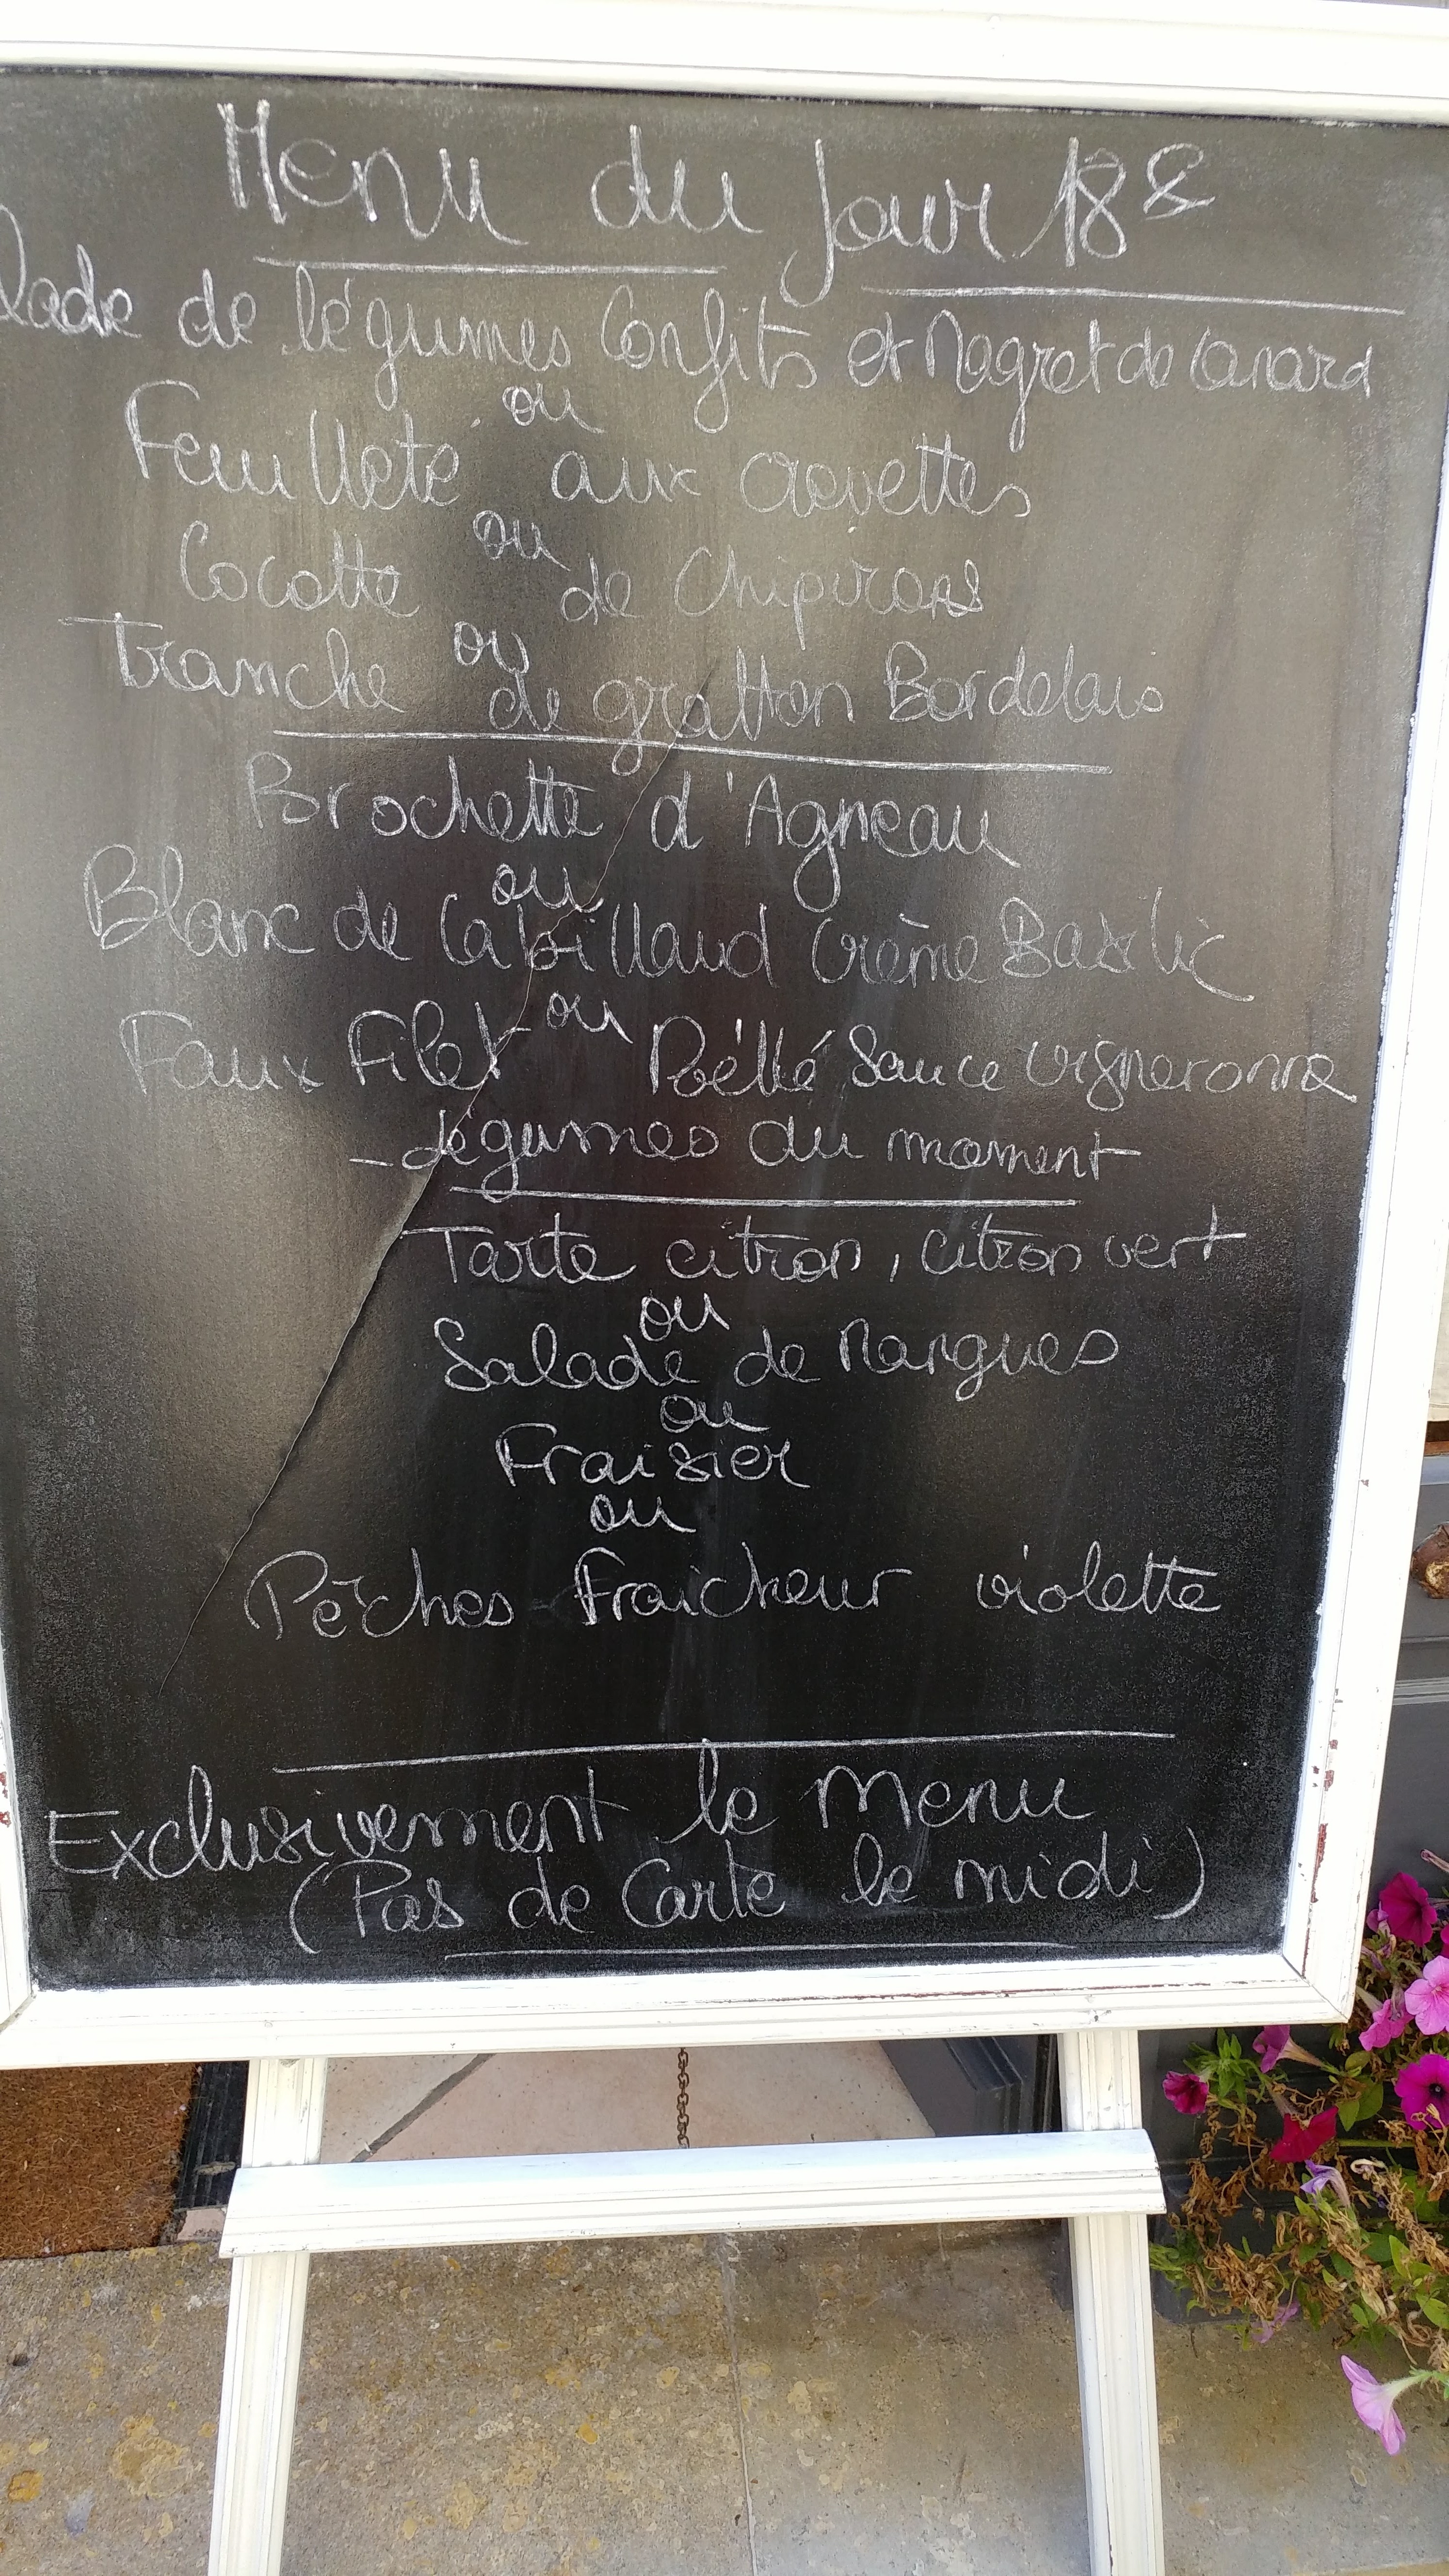 Menu du jour 18€
lade de légumes Confits et Magret de Canard
ou
Feuilleté aux crevettes
ou
Cocotte de Chipirons
ou
Tranche de gratton Bordelais
Brochette d'Agneau
ou
Blanc de Cabillaud Crème Basilic
ou
Faux Filet Poêlé Sauce vigneronne
- légumes du moment
Tarte citron, citron vert
ou
Salade de Mangues
ou
Fraisier
ou
Pêches Fraicheur violette
Exclusivement le Menu
(Pas de Carte le midi)